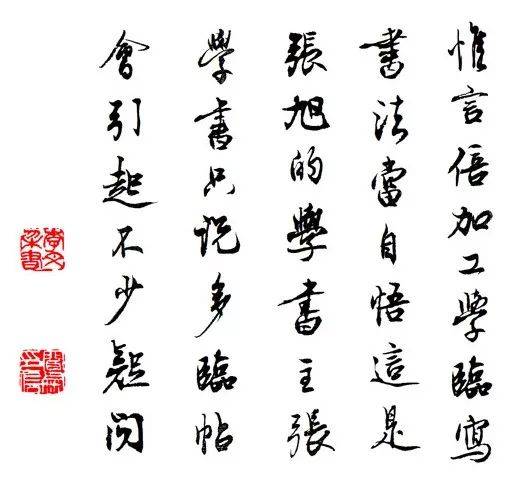 惟言倍加工學臨寫
書法當自悟這是
張旭的學書主張
學書只說多臨帖
會引起不少疑問